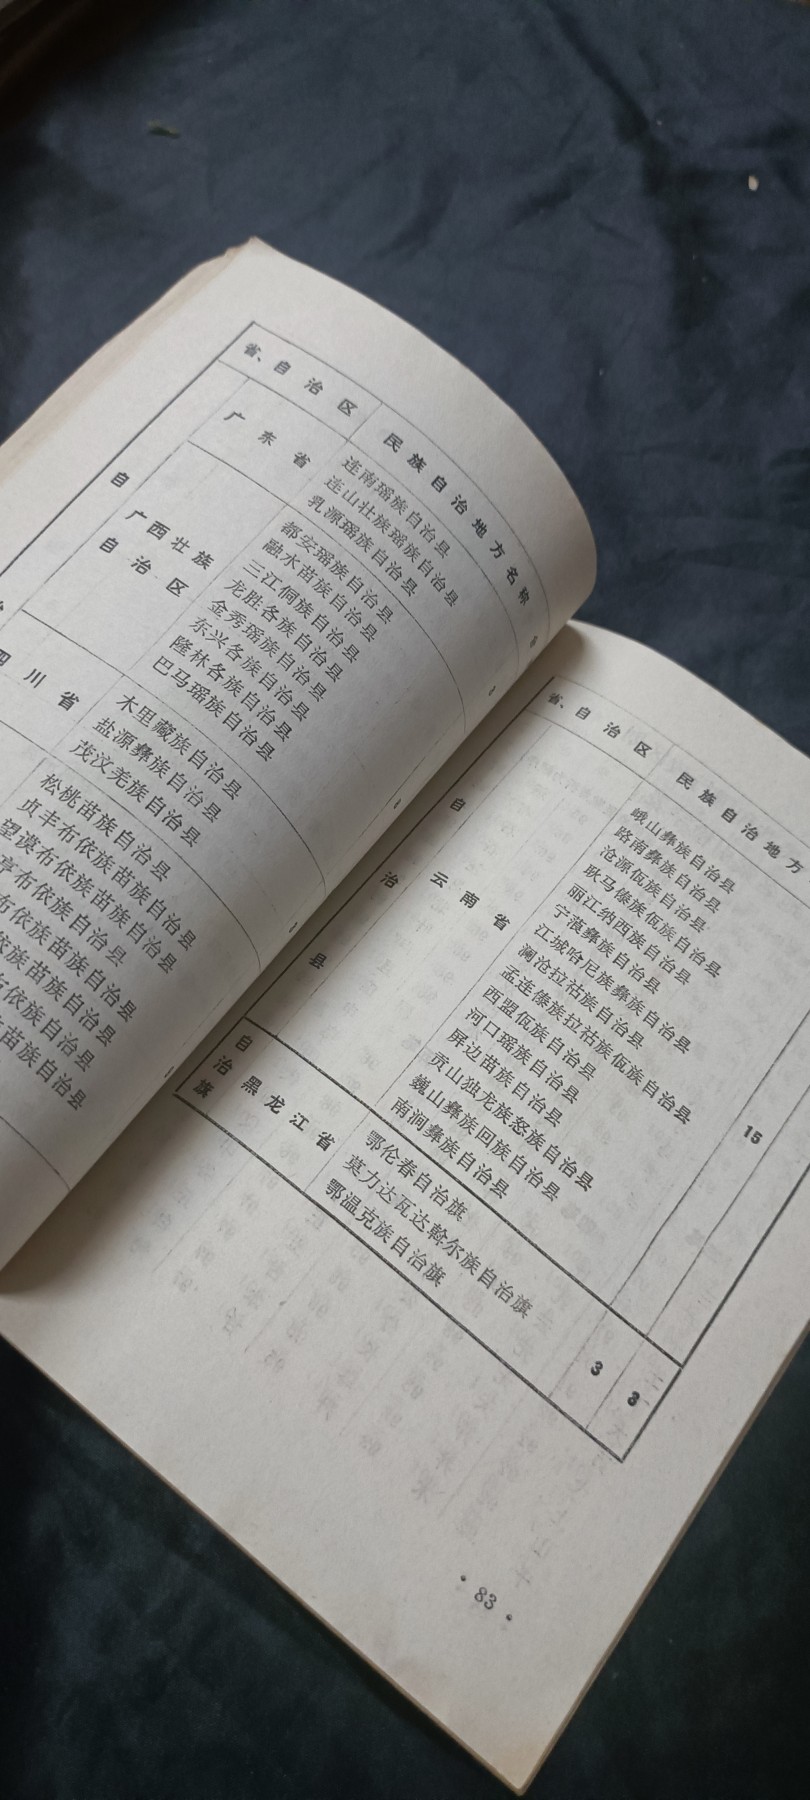 省、自治区 民族自治地方名称
自
广东省
连南瑶族自治县
连山壮族瑶族自治县
乳源瑶族自治县
广西壮族
自治区
都安瑶族自治县
融水苗族自治县
三江侗族自治县
龙胜各族自治县
金秀瑶族自治县
东兴各族自治县
隆林各族自治县
巴马瑶族自治县
四川省
木里藏族自治县
盐源彝族自治县
茂汶羌族自治县
松桃苗族自治县
贞丰布依族苗族自治县
望谟布依族苗族自治县
布依族自治县
布依族苗族自治县
依族苗族自治县
布依族自治县
苗族自治县
省、自治区 民族自治地方
自治县
云南省
峨山彝族自治县
路南彝族自治县
沧源佤族自治县
耿马傣族佤族自治县
丽江纳西族自治县
宁蒗彝族自治县
江城哈尼族彝族自治县
澜沧拉祜族自治县
孟连傣族拉祜族佤族自治县
西盟佤族自治县
河口瑶族自治县
屏边苗族自治县
贡山独龙族怒族自治县
巍山彝族回族自治县
南涧彝族自治县
15
自治旗
黑龙江省
鄂伦春自治旗
莫力达瓦达斡尔族自治旗
鄂温克族自治旗
3 3
· 83 ·